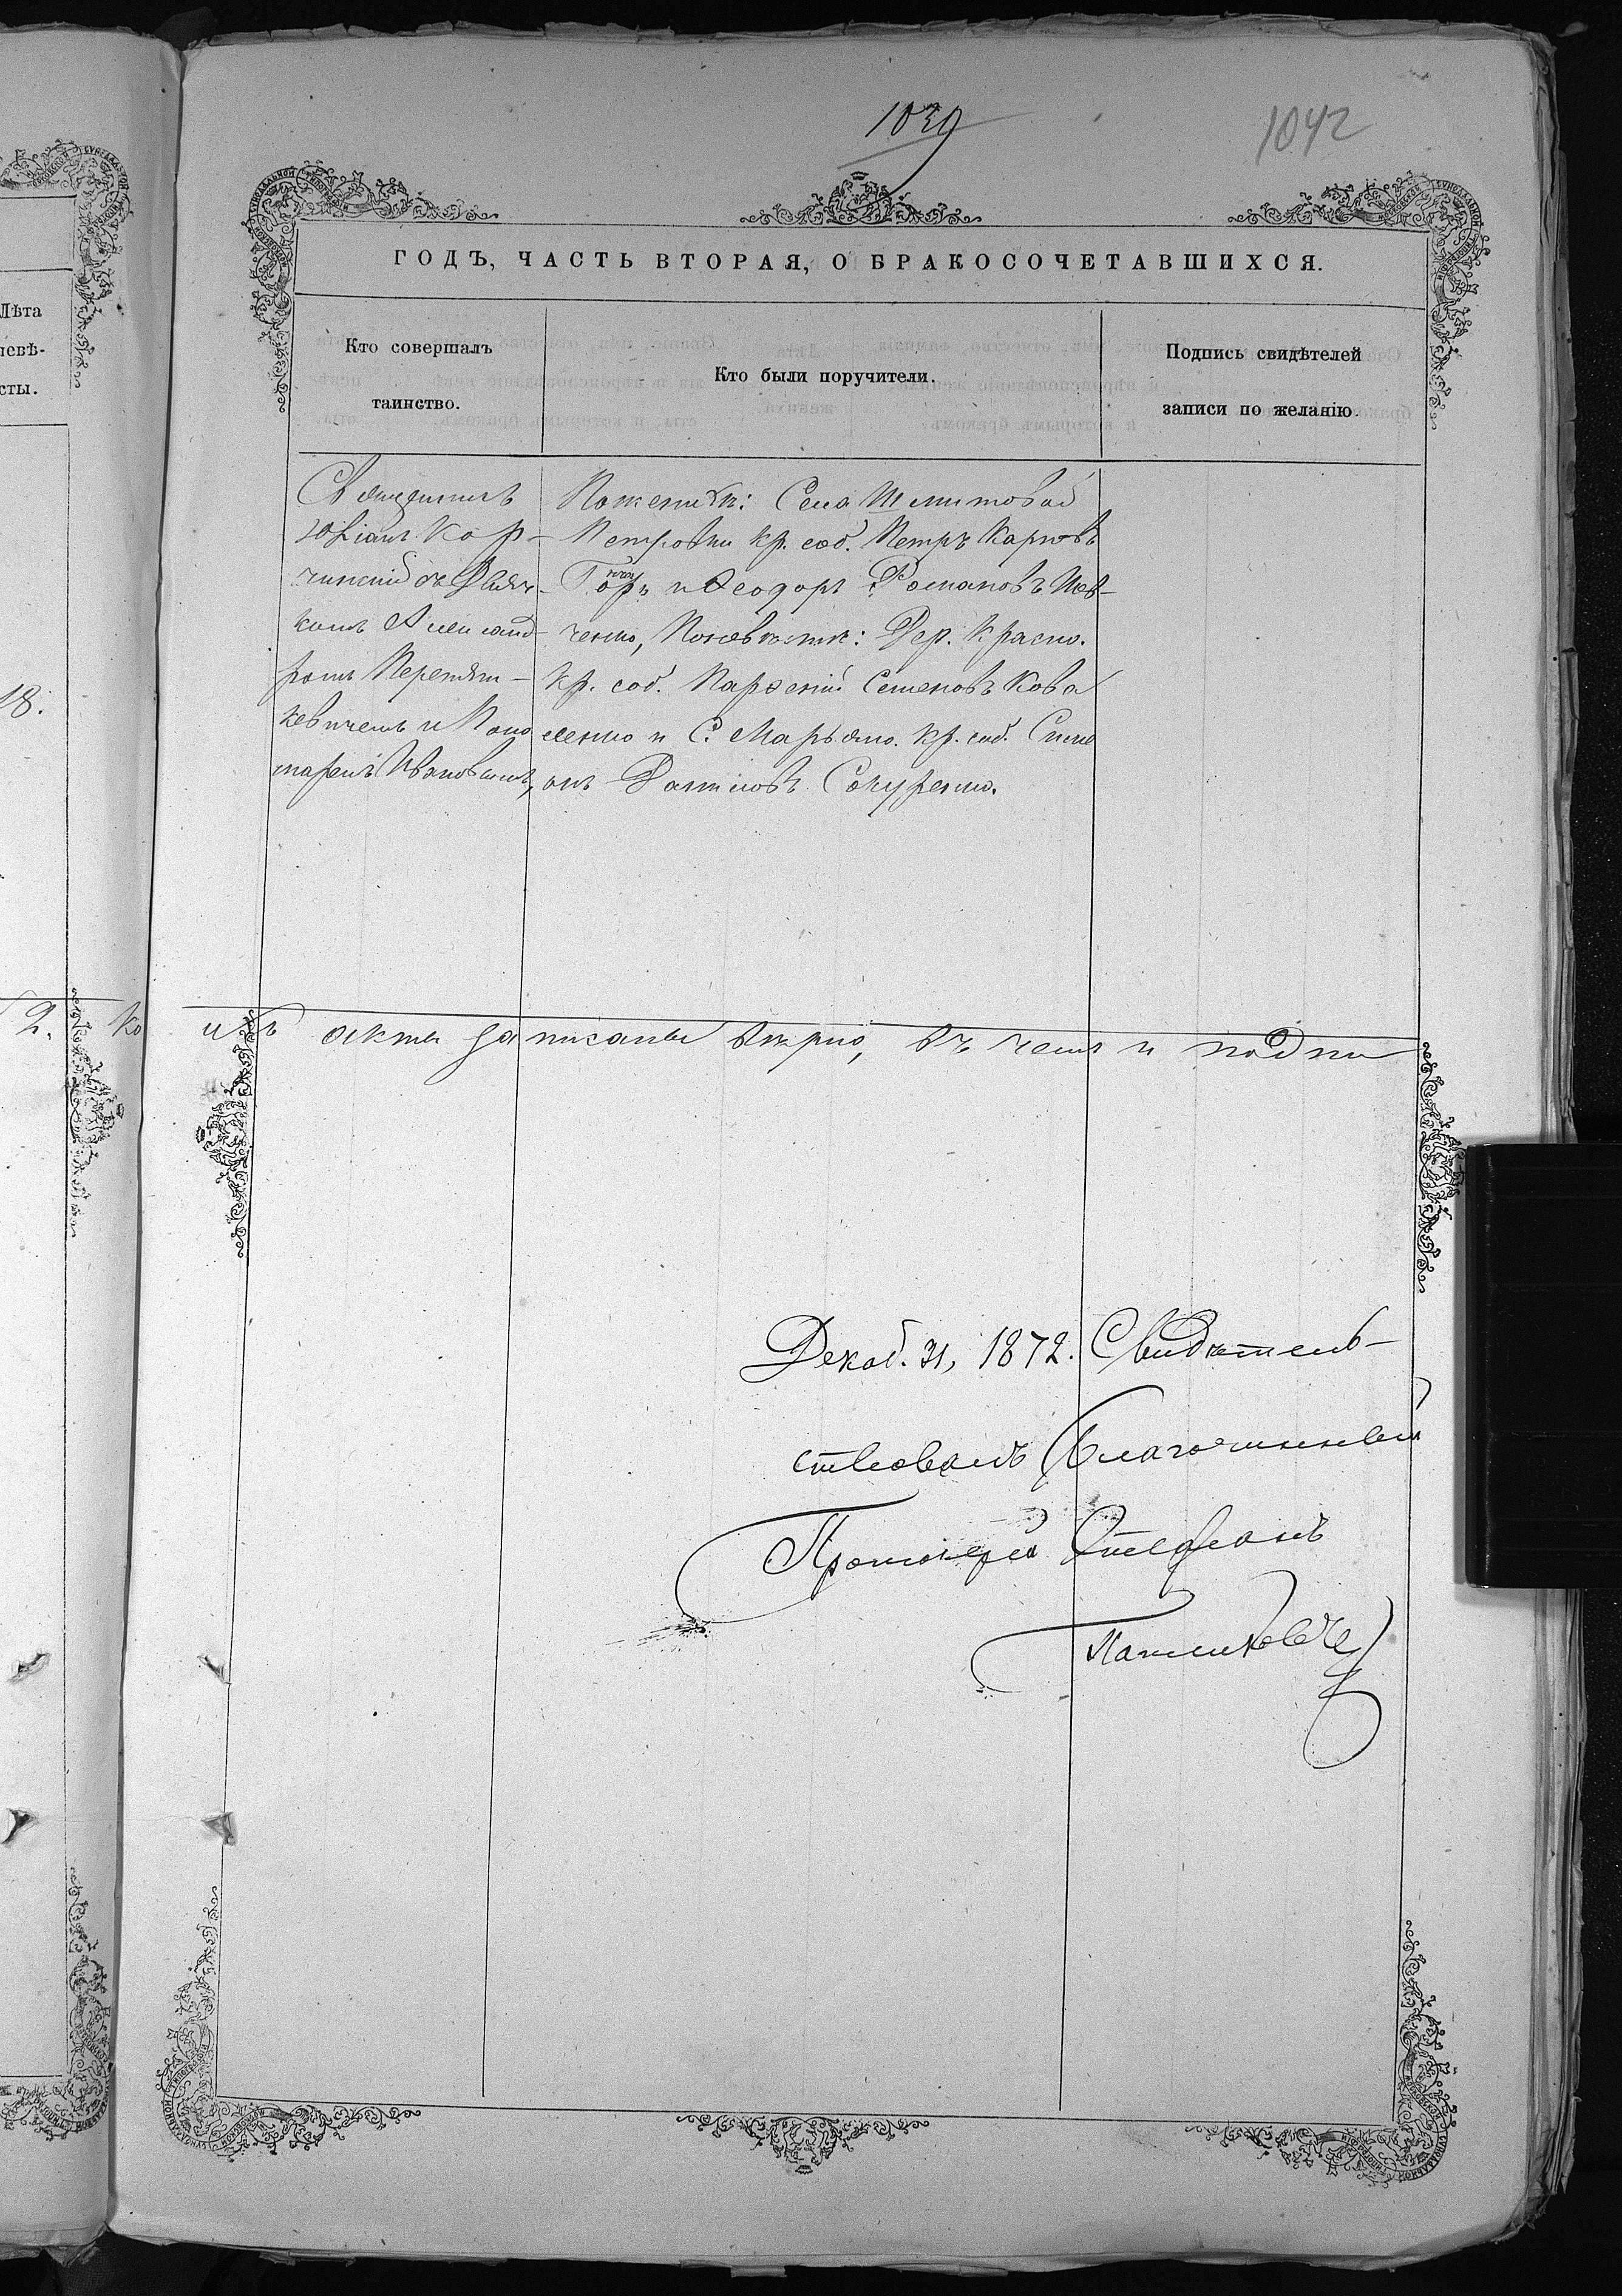 1039
1042
ГОДЪ, ЧАСТЬ ВТОРАЯ, О БРАКОСОЧЕТАВШИХСЯ.
Лѣта
невѣ-
сты.
Кто совершалъ
таинство.
Кто были поручители.
Подпись свидѣтелей
записи по желанію.
18.
Священникъ
Юліанъ Кор-
чинскій съ Дьяч-
комъ Александ-
ромъ Перетят-
кевичемъ и Поно
маремъ Ивановымъ,
По женихѣ: Села
Петровки кр. соб. Петръ Карповъ
и Ѳеодоръ Романовъ Шев-
ченко, По невѣстѣ: Дер. Красно.
кр. соб. Парѳеній Семеновъ Кова
ленко и С. Марьяно. кр. соб. Симе
онъ Даниловъ Сокуренко.
2. ко ихъ акты записаны вѣрно, въ чемъ и подпи
Декаб. 31, 1872. Свидѣтель-
ствовалъ Благочинный
Протоіерей Стефанъ